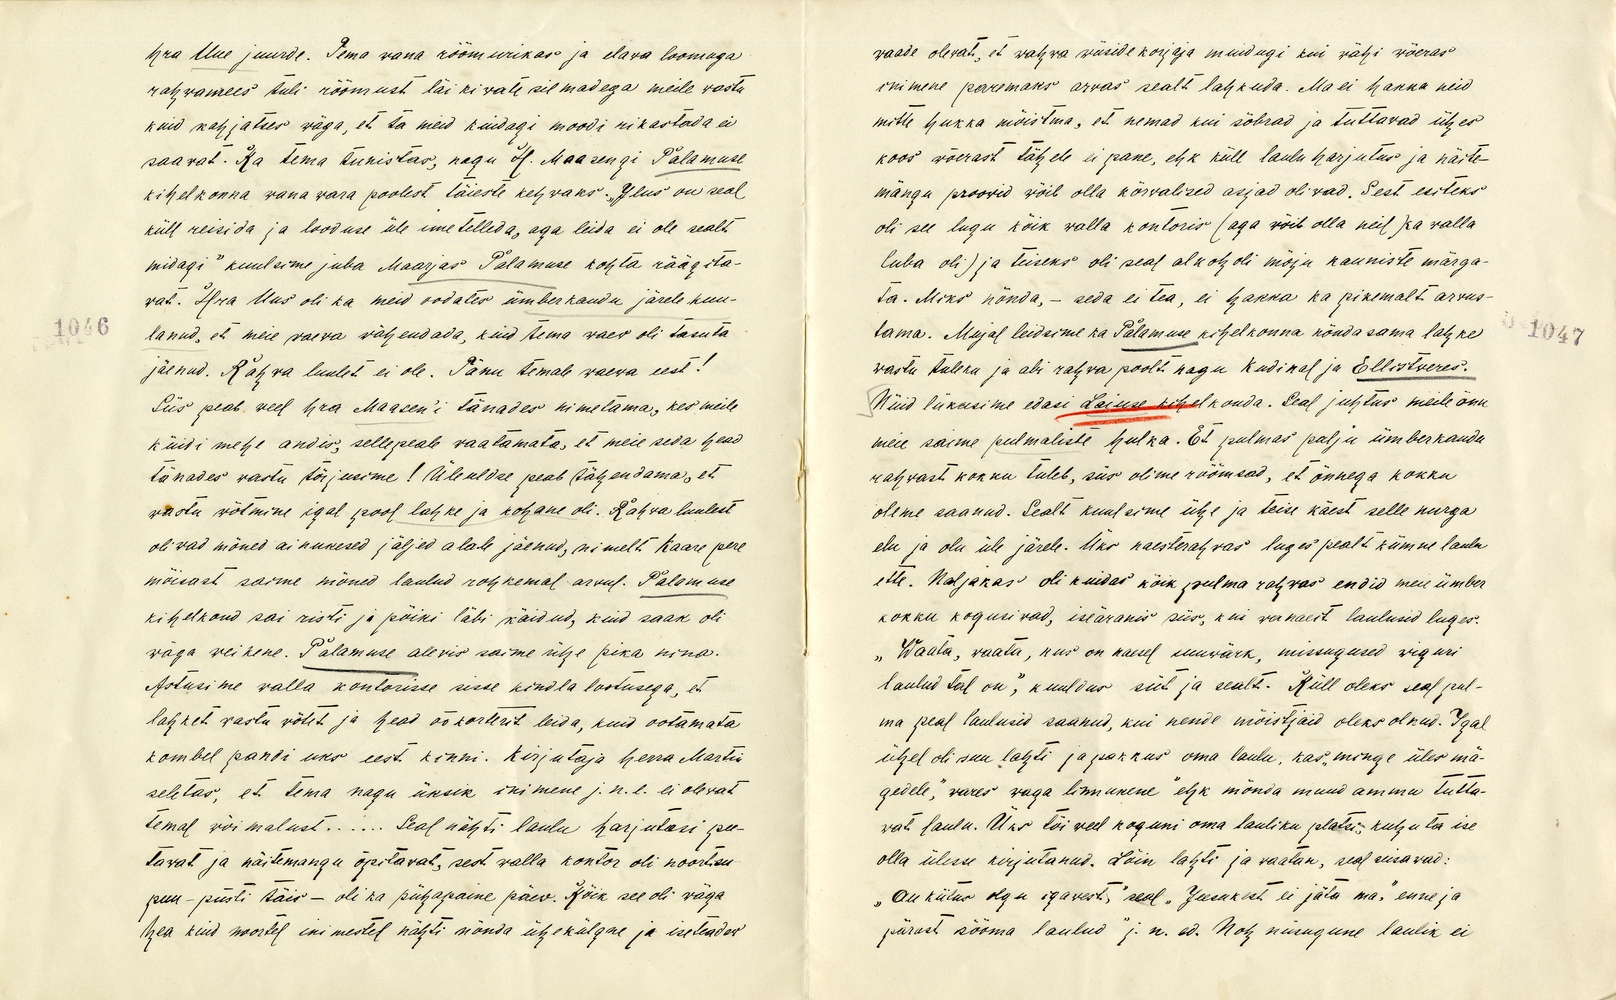 hra Uue juurde. Tema vana rõõmurikas ja elava loomuga
rahvamees tuli rõõmust läikivate silmadega meile vastu
kuid kahjatses väga, et ta meid kuidagi moodi rikastada ei
saavat. Ka tema tunistas, nagu H. Maasengi Palamuse
kihelkonna vana vara poolest täieste kehvaks. „Ilus on seal
küll reisida ja looduse üle imetelleda, aga leida ei ole sealt
midagi" kuulsime juba Maarjas Palamuse kohta räägita-
vat. Hra Uus oli ka meid oodates ümberkaudu järele kuu-
lanud, et meie vaeva vähendada, kuid tema vaev oli tasuta
jäenud. Rahva luulet ei ole. Tänu temale vaeva eest!
Siis peab veel hra Maasen'i tänades nimetama, kes meile
küüdi mehe andis, sellepeale vaatamata, et meie seda head
tänades vastu tõrjusime! Üleüldse peab tähendama, et
vastu võtmine igal pool lahke ja kohane oli. Rahva luulest
olivad mõned ainukesed jäljed alale jäenud, nimelt Kaarepere
mõisast saime mõned laulud rohkemal arvul. Palamuse
kihelkond sai risti ja põiki läbi käidud, kuid saak oli
väga veikene. Palamuse alevis saime ühe pika nina.
Astusime valla kontorisse sisse kindla lootusega, et
lahket vastu võtet ja head öökorterit leida, kuid ootamata
kombel pandi uks eest kinni. Kirjutaja herra Martin
seletas, et tema nagu üksik inimene j. n. e. ei olevat
temal või malust...... Seal nähti laulu harjutasi pee-
tavat ja näitemangu õpitavat, sest valla kontor oli noortsu
puu-püsti täis – oli ka pühapaine päev. Kõik see oli väga
hea kuid noortel inimestel nähti nõnda ühekülgne ja iseteadev
vaade olevat, et rahva viiside korjaja muidugi kui vähi võeras
inimene paremaks arvas sealt lahkuda. Ma ei hakka neid
mitte hukka mõistma, et nemad kui sõbrad ja tuttavad ühes
koos võerast tähele ei pane, ehk küll laulu harjutus ja näite-
mängu proovid võib olla kõrvalised asjad olivad. Sest esiteks
oli see lugu kõik valla kontoris (aga võib olla neil ka valla
luba oli) ja teiseks oli seal alkoholi mõju kauniste märga-
ta. Miks nõnda, – seda ei tea, ei hakka ka pikemalt arvus-
tama. Mujal leidsime ka Palamuse kihelkonna nõnda sama lahke
vastu tuleku ja abi rahva poolt nagu Kudinal ja Ellistveres.
Nüid liikusime edasi Laiuse kihelkonda. Seal juhtus meile õnn
meie saime pulmaliste hulka. Et pulmas palju ümberkaudu
rahvast kokku tuleb, siis olime rõõmsad, et õnnega kokku
oleme saanud. Sealt kuulsime ühe ja teise käest selle nurga
elu ja olu üle järele. Üks naesterahvas luges pealt kümne laulu
ette. Naljakas oli kuidas kõik pulma rahvas endid meie ümber
kokku kogusivad, iseäranis siis, kui vanaeit laulusid luges.
„Waata, vaata, kus on naesel suuvärk, missugused viguri
laulud tal on", kuuldus siit ja sealt. Küll oleks seal pul-
ma peal laulusid saanud, kui nende mõistjaid oleks olnud. Igal
ühel oli suu lahti ja pakkus oma laulu, kas „minge üles mä-
gedele," vares vaga linnukene" ehk mõnda muud ammu tutta-
vat laulu. Üks tõi veel koguni oma lauliku platsi, kuhu ta ise
olla ülesse kirjutanud. Löin lahti ja vaatan, seal seisavad:
„Au kiitus olgu igavest," seal „Jeesukest ei jäta ma", enne ja
pärast sööma laulud" j. n. ed. Noh niisugune laulik ei
1046
1047